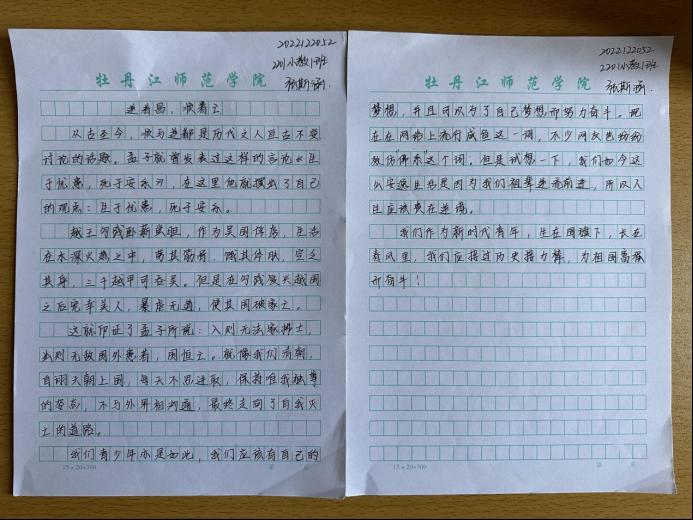 2022122052
2201小教1班
牡丹江师范学院
张斯涵
逆者昌，顺者亡
从古至今，顺与逆都是历代文人亘古不变
讨论的话题。孟子就曾发表过这样的言论《生
于忧患，死于安乐》，在这里他就摆出了自己
的观点：生于忧患，死于安乐。
越王勾践卧薪尝胆，作为吴国俘虏，生活
在水深火热之中，苦其筋骨，饿其体肤，空乏
其身，三千越甲可吞吴。但是在勾践复兴越国
之后宠幸美人，暴虐无道，使其国破家亡。
这就印证了孟子所说：入则无法家拂士，
出则无敌国外患者，国恒亡。就像我们清朝，
自诩天朝上国，每天不思进取，保持唯我独尊
的姿态，不与外界相沟通，最终走向了自我灭
亡的道路。
我们青少年亦是如此，我们应该有自己的
15×20=300
第 页
2022122052
2201小教1班
牡丹江师范学院
张斯涵
梦想，并且可以为了自己梦想而努力奋斗。现
在在网络上流行咸鱼这一词，不少网友也纷纷
效仿"佛系"这个词。但是试想一下，我们如今这
么安逸生活是因为我们祖辈逆流前进，所以人
生应该贵在逆境。
我们作为新时代青年，生在国旗下，长在
春风里，我们应接过历史接力棒，为祖国富强
而奋斗！
15×20=300
第 页